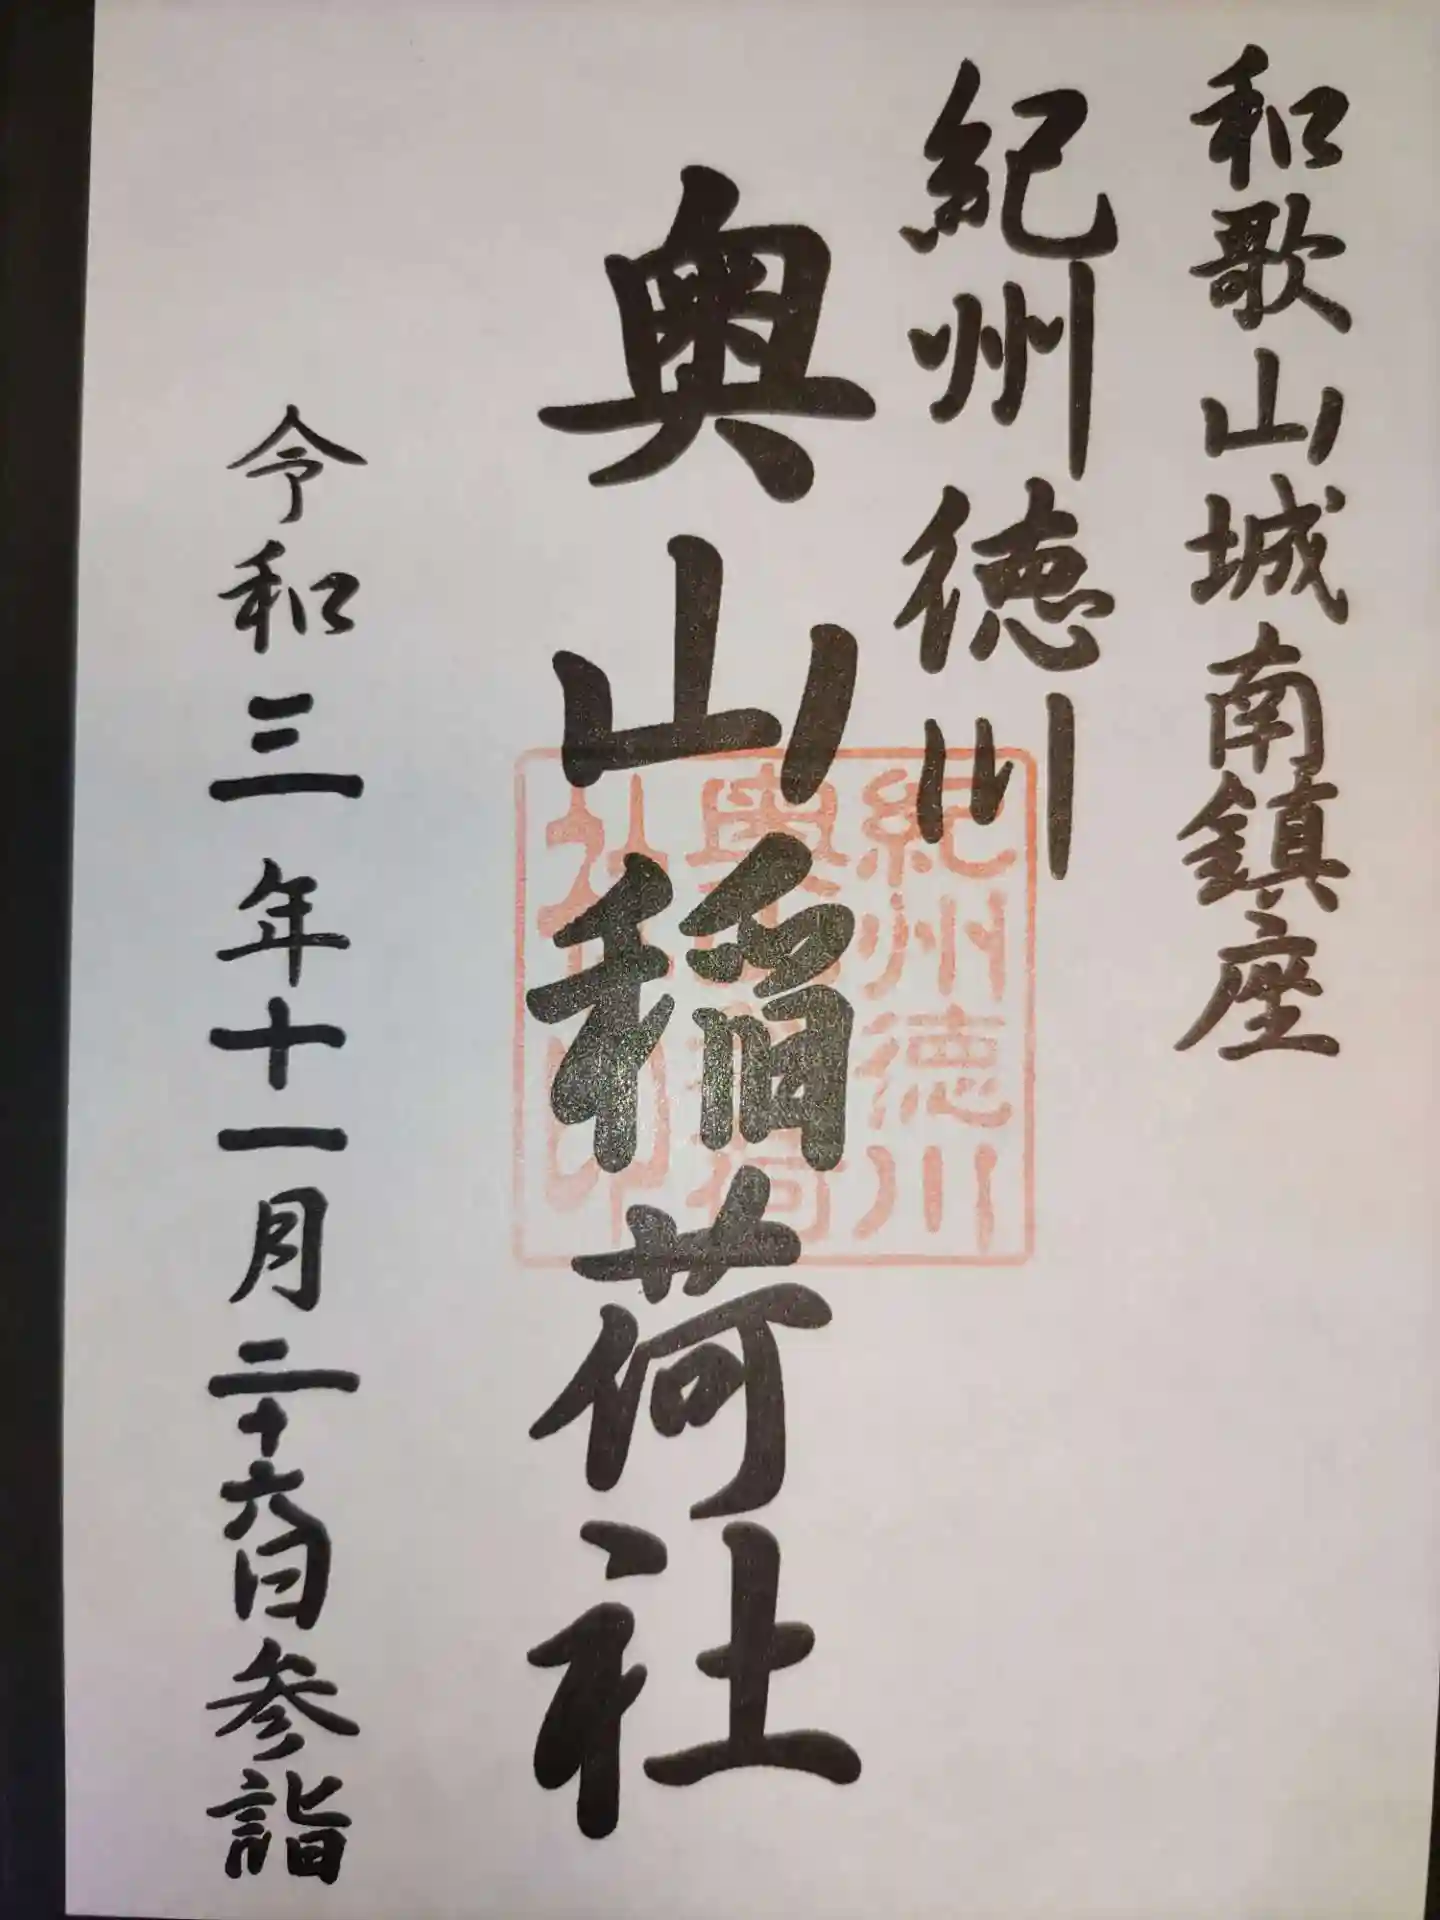 和歌山城南鎮座
紀州徳川
奥山稲荷社
紀州徳川
奥山稲荷
社印
令和三年十一月二十六日参詣